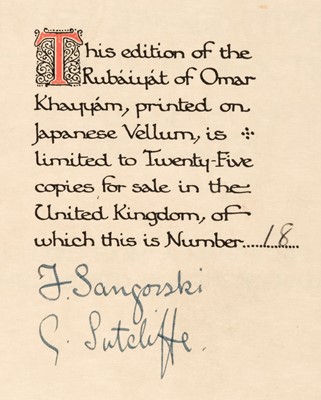 This edition of the
Rubáiyát of Omar
Khayyám, printed on
Japanese Vellum, is
limited to Twenty-Five
copies for sale in the
United Kingdom, of
which this is Number......18...
F. Sangorski
G. Sutcliffe.